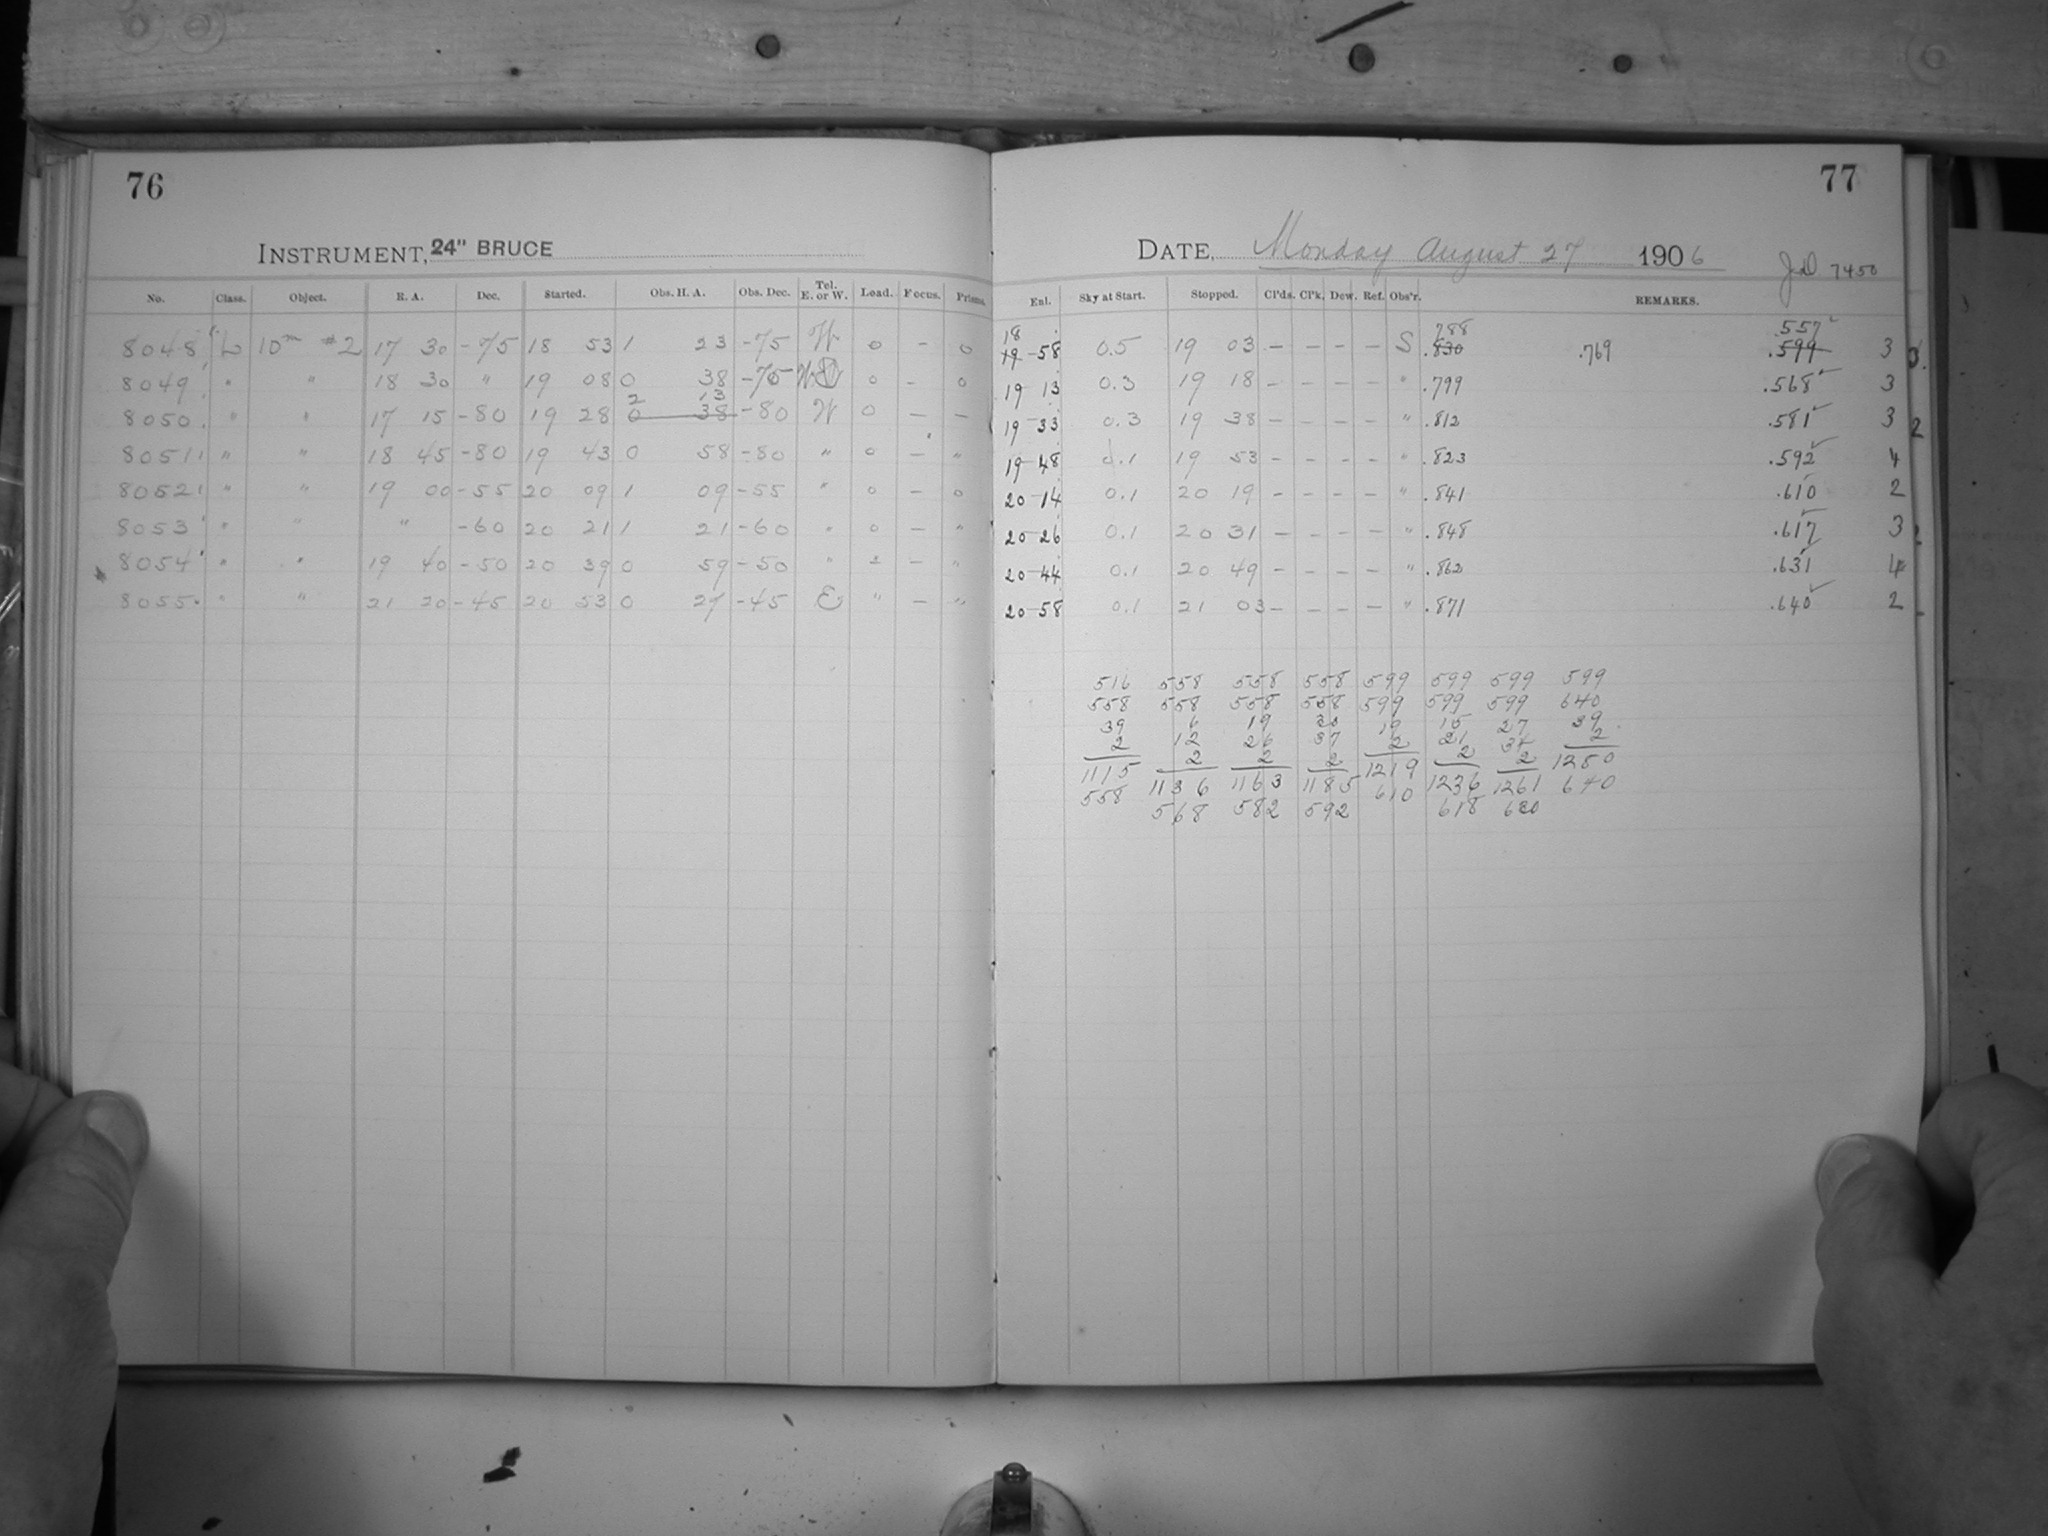 76
INSTRUMENT, 24" BRUCE
No. Class. Object. R. A. Dec. Started. Obs. H. A. Obs. Dec. Tel. E. or W. Load. Focus. Prisms.
8048 L 10m #2 17 30 -75 18 53 1 23 -75 W 0 - 0
8049 " " 18 30 " 19 08 0 38 -75 W 0 - 0
2 13
8050 " " 17 15 -80 19 28 0 38 -80 W 0 - -
8051 " " 18 45 -80 19 43 0 58 -80 " 0 - "
8052 " " 19 00 -55 20 09 1 09 -55 " 0 - 0
8053 " " " -60 20 21 1 21 -60 " 0 - "
8054 " " 19 40 -50 20 39 0 59 -50 " 2 - "
8055 " " 21 20 -45 20 53 0 27 -45 E " - "
77
DATE, Monday August 27 1906 JD 7450
Enl. Sky at Start. Stopped. Cl'ds. Cl'k. Dew. Ref. Obs'r. REMARKS.
18 788 .557
19-58 0.5 19 03 - - - - S .830 .769 .599 3
19 13 0.3 19 18 - - - - " .799 .568 3
19 33 0.3 19 38 - - - - " .812 .581 3
19-48 0.1 19 53 - - - - " .823 .592 4
20-14 0.1 20 19 - - - - " .841 .610 2
20-26 0.1 20 31 - - - - " .848 .617 3
20-44 0.1 20 49 - - - - " .862 .631 4
20-58 0.1 21 03 - - - - " .871 .640 2
516 558 558 558 599 599 599 599
558 558 558 558 599 599 599 640
39 6 19 30 19 15 27 39
2 12 26 37 2 21 34 2
2 2 2 2 2
1115 1136 1163 1185 1219 1236 1261 1280
558 568 582 592 610 618 630 640